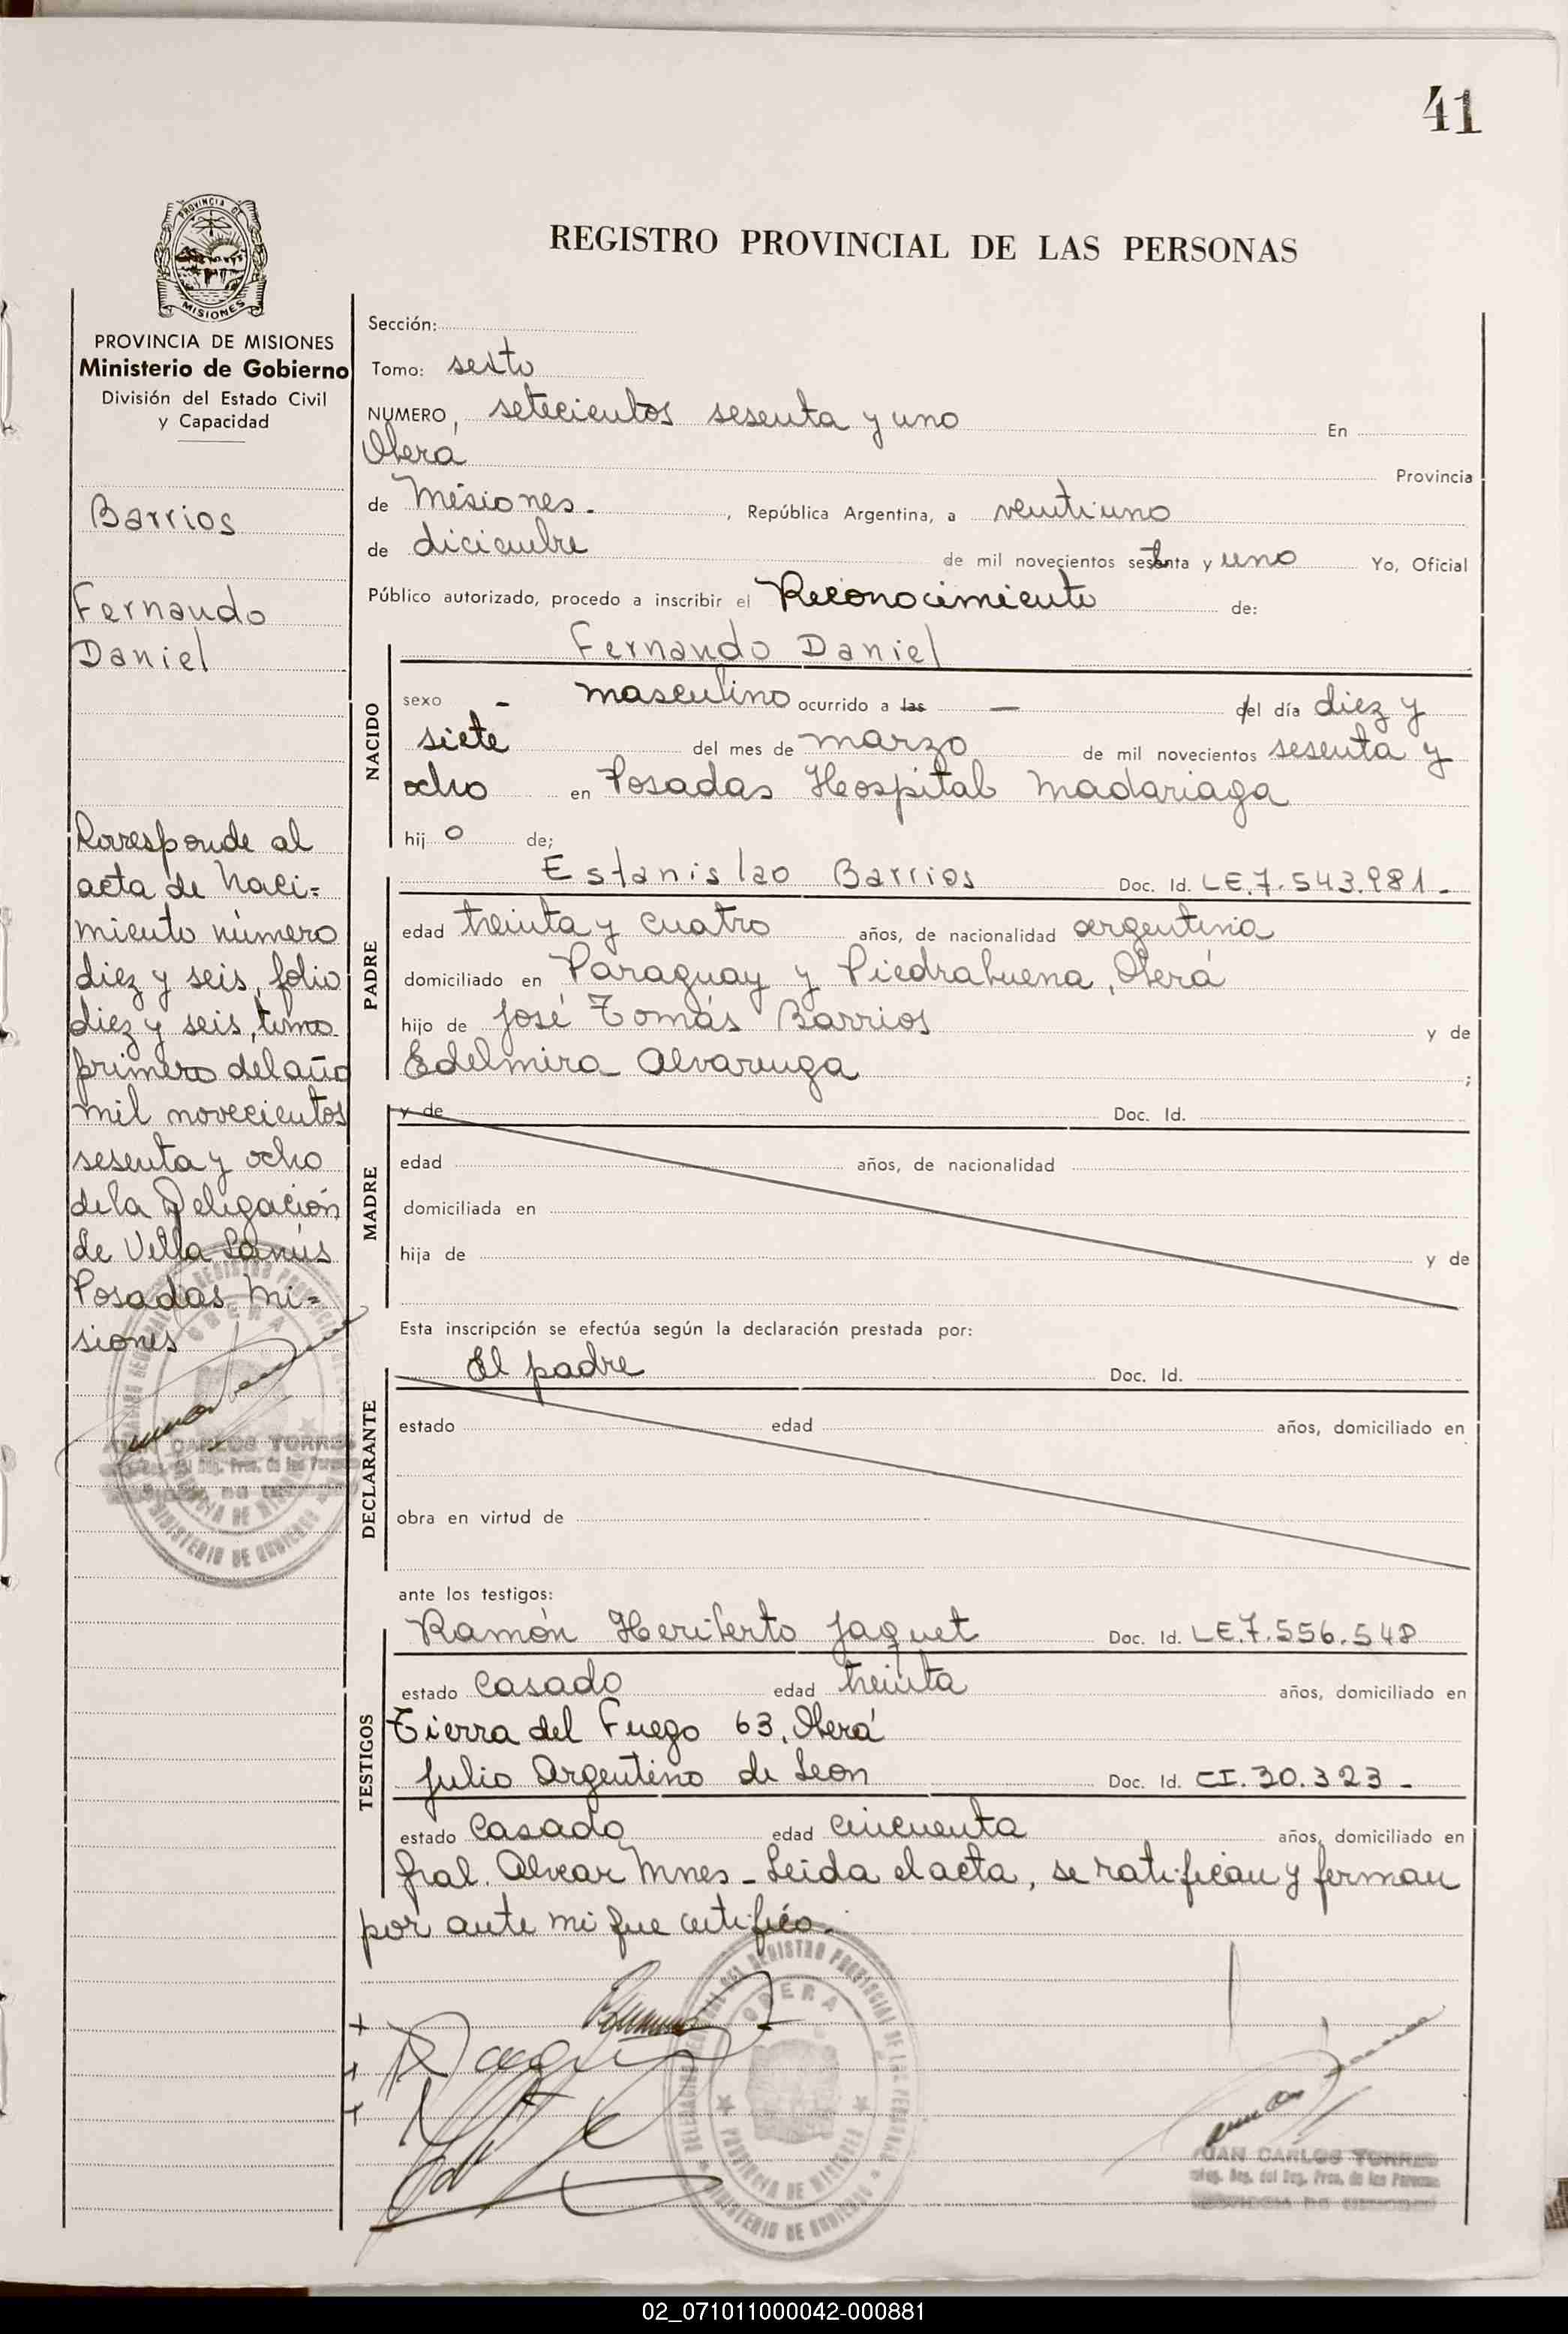 41
PROVINCIA DE
MISIONES
REGISTRO PROVINCIAL DE LAS PERSONAS
PROVINCIA DE MISIONES
Ministerio de Gobierno
División del Estado Civil
y Capacidad
Barrios
Fernando
Daniel
Corresponde al
acta de Naci=
miento número
diez y seis, folio
diez y seis, tomo
primero del año
mil novecientos
sesenta y ocho
de la Delegación
de Villa Lanús
Posadas Mi=
siones
JUAN CARLOS TORRES
Sección:
Tomo: sexto
NUMERO, setecientos sesenta y uno En
Oberá Provincia
de Misiones. , República Argentina, a veintiuno
de diciembre de mil novecientos setenta y uno Yo, Oficial
Público autorizado, procedo a inscribir el Reconocimiento de:
NACIDO
Fernando Daniel
sexo - masculino ocurrido a las — del día diez y
siete del mes de marzo de mil novecientos sesenta y
ocho en Posadas Hospital Madariaga
hij o de;
PADRE
Estanislao Barrios Doc. Id. LE.7.543.981.-
edad treinta y cuatro años, de nacionalidad argentina
domiciliado en Paraguay y Piedrabuena, Oberá
hijo de José Tomás Barrios y de
Edelmira Alvarenga ;
MADRE
y de Doc. Id.
edad años, de nacionalidad
domiciliada en
hija de y de
Esta inscripción se efectúa según la declaración prestada por:
DECLARANTE
El padre Doc. Id.
estado edad años, domiciliado en
obra en virtud de
ante los testigos:
TESTIGOS
Ramón Heriberto Jaquet Doc. Id. LE.7.556.548
estado Casado edad treinta años, domiciliado en
Tierra del Fuego 63, Oberá
Julio Argentino de Leon Doc. Id. CI.30.323-
estado Casado edad cincuenta años, domiciliado en
Gral. Alvear Mnes - Leida el acta, se ratifican y firman
por ante mi que certifico.
OBERA
PROVINCIA DE MISIONES
MINISTERIO DE GOBIERNO
JUAN CARLOS TORRES
02_071011000042-000881